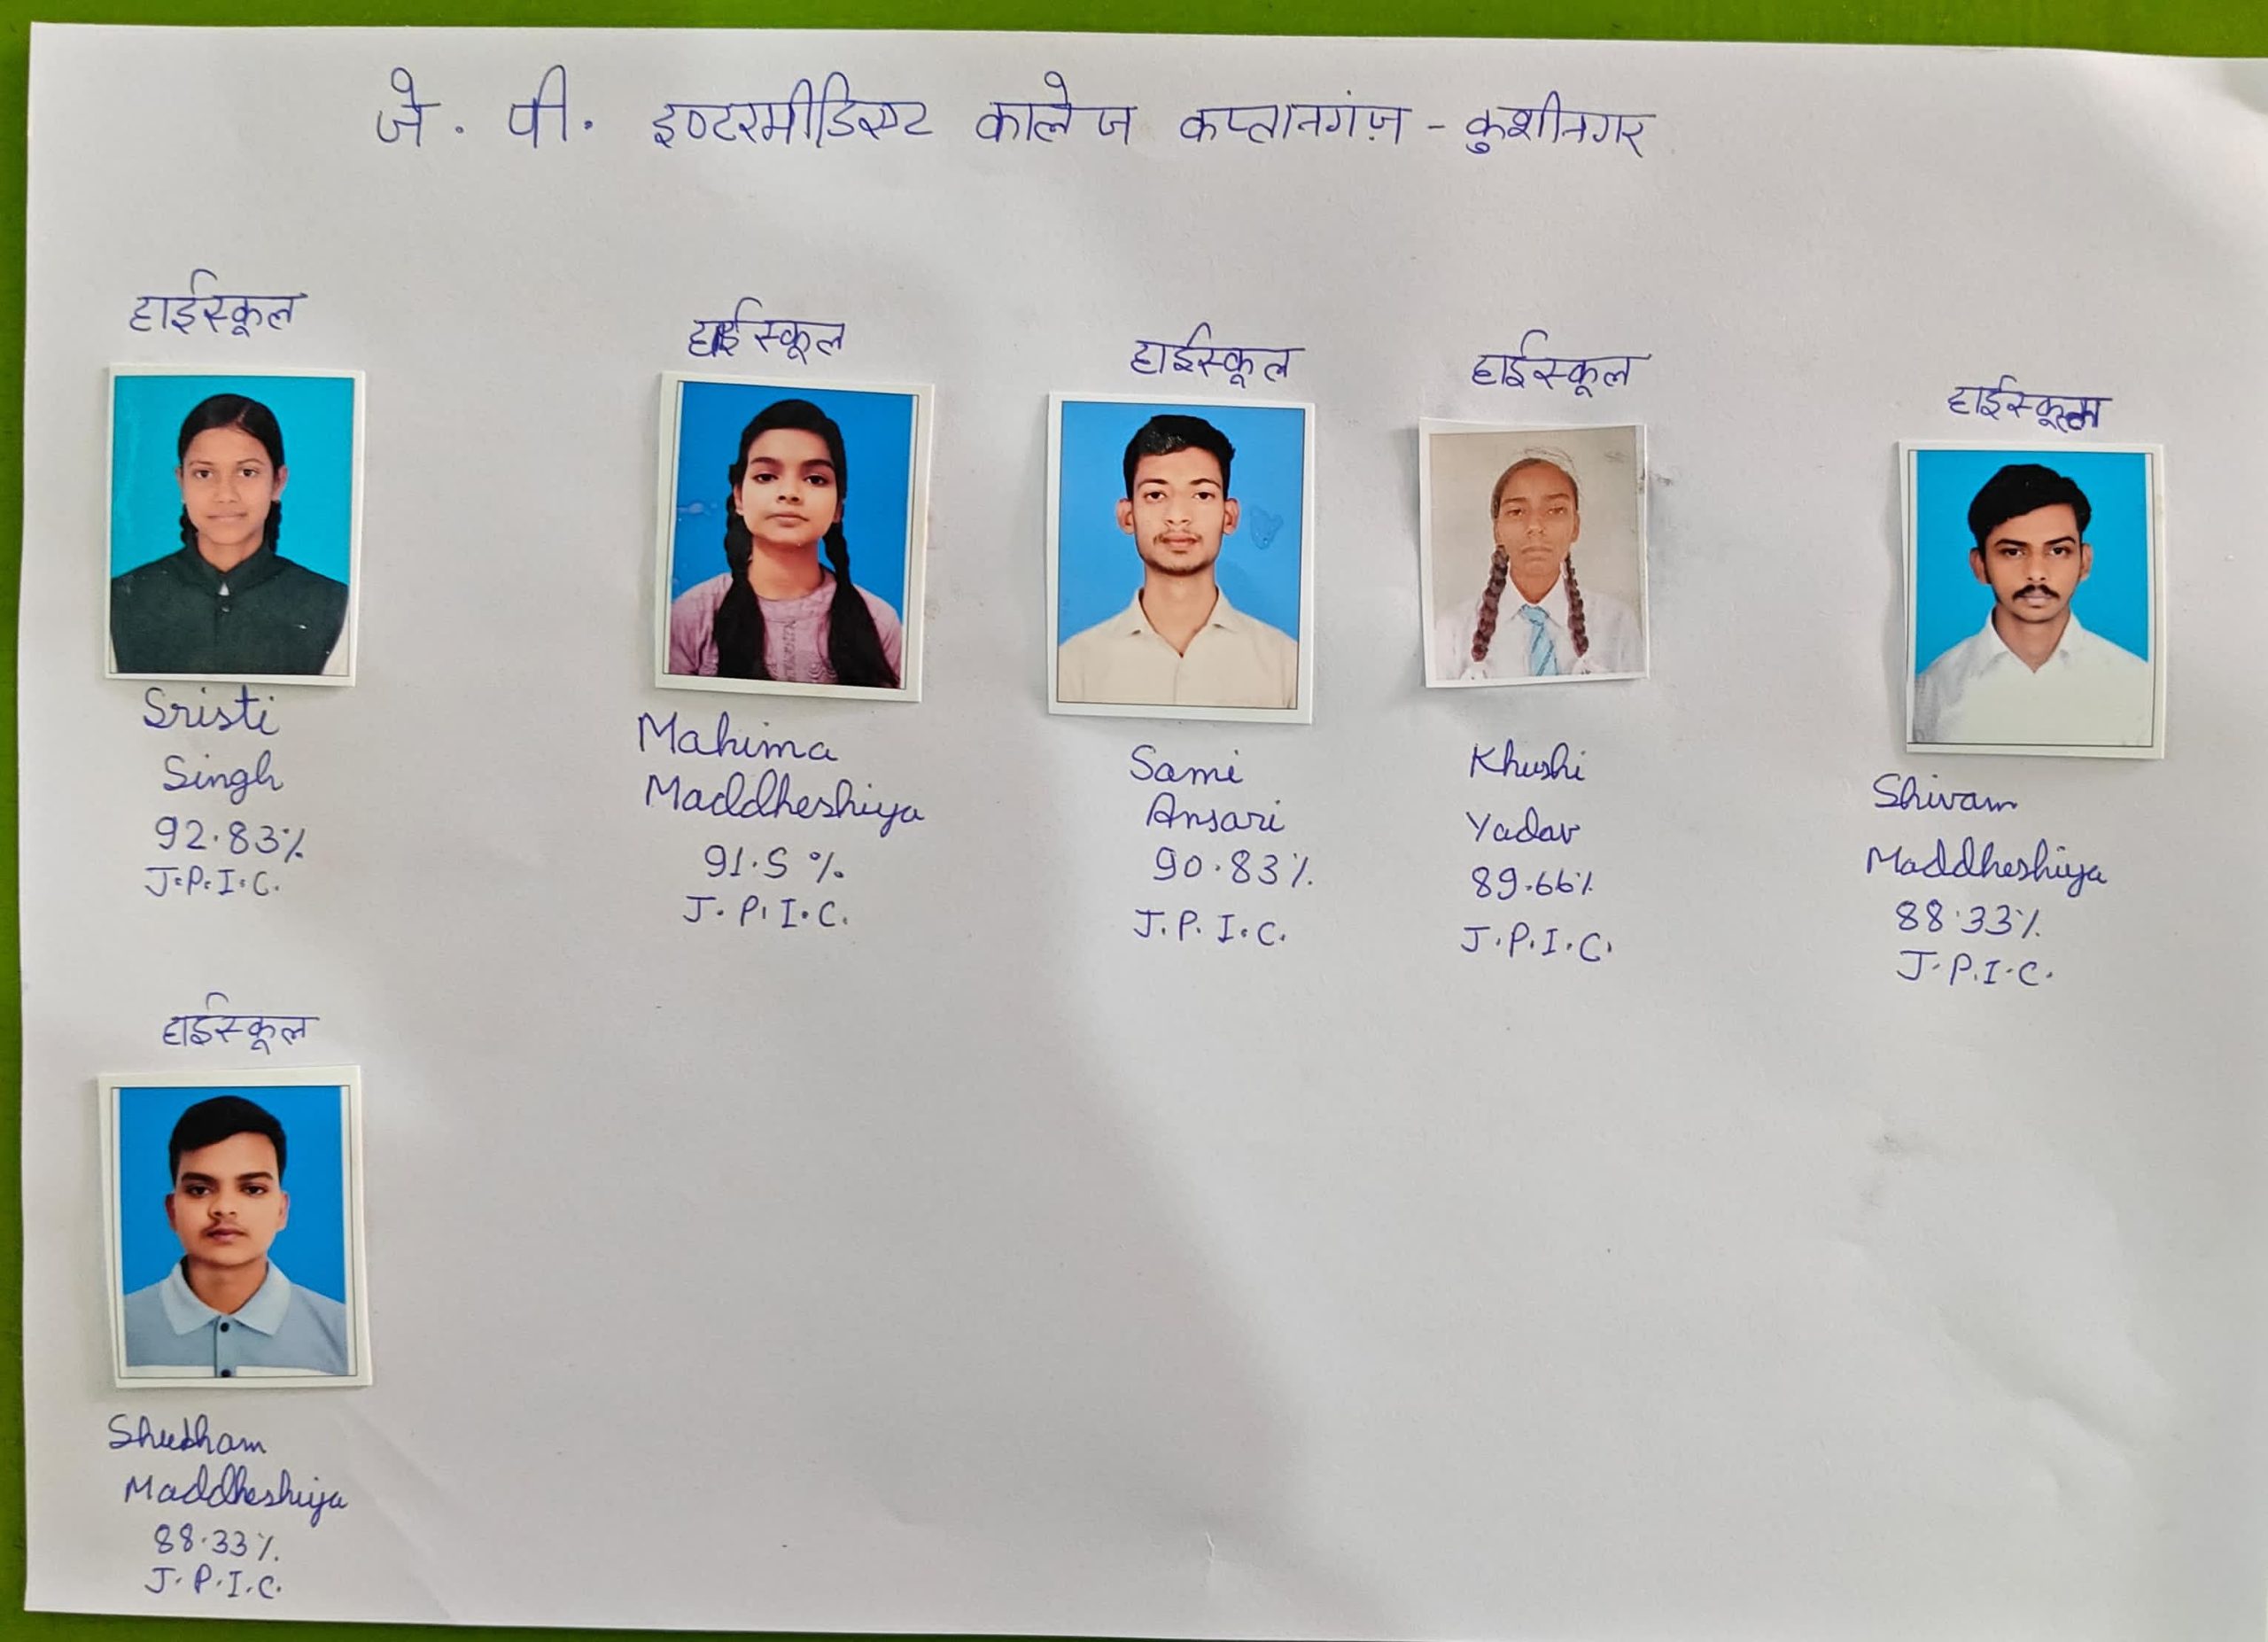 जे. पी. इण्टरमीडिएट कालेज कप्तानगंज़ - कुशीनगर
हाईस्कूल
Sristi
Singh
92.83%
J.P.I.C.
हाईस्कूल
Mahima
Maddheshiya
91.5 %
J.P.I.C.
हाईस्कूल
Sami
Ansari
90.83%
J.P.I.C.
हाईस्कूल
Khushi
Yadav
89.66%
J.P.I.C.
हाईस्कूल
Shivam
Maddheshiya
88.33%
J.P.I.C.
हाईस्कूल
Shubham
Maddheshiya
88.33%
J.P.I.C.